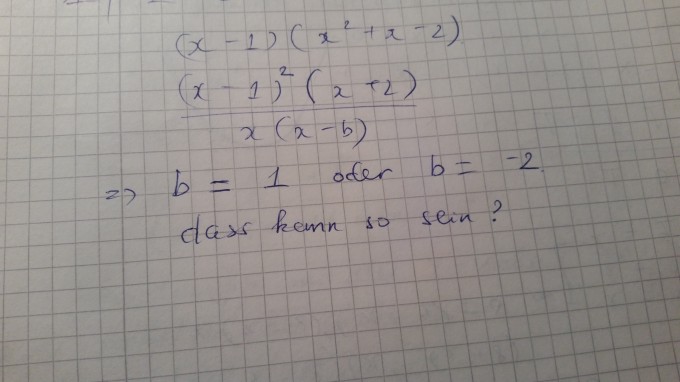 (x - 1) (x² + x - 2)
(x - 1)² (x + 2)
x (x - b)
=> b = 1 oder b = -2.
dass kann so sein?